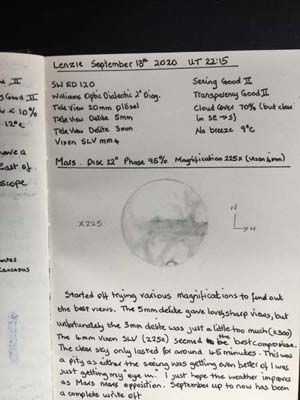 II
Good II
< 10%
12°c
have a
East of
scope
Caucasus
Lenzie September 13th 2020 UT 22:15
SW ED120
Williams Optic Dielectic 2" Diag.
TeleView 20mm plösol
TeleView Delite 5mm
TeleView Delite 3mm
Vixen SLV mm4
Seeing Good II
Transparency Good II
Cloud Cover 70% (but clear
in SE → S)
No breeze 9°c
Mars. Disc 22" Phase 95% Magnification 225x (Vixen 4mm)
X225
N
Started off trying various magnifications to find out
the best views. The 5mm delite gave lovely sharp views, but
unfortunately the 3mm delite was just a little too much (x300)
The 4mm Vixen SLV (225x) seemed to be the best compromise.
The clear sky only lasted for around 45 minutes. This was
a pity as either the seeing was getting even better or I was
just getting my eye in. I just hope the weather improves
as Mars nears opposition. September up to now has been
a complete write off